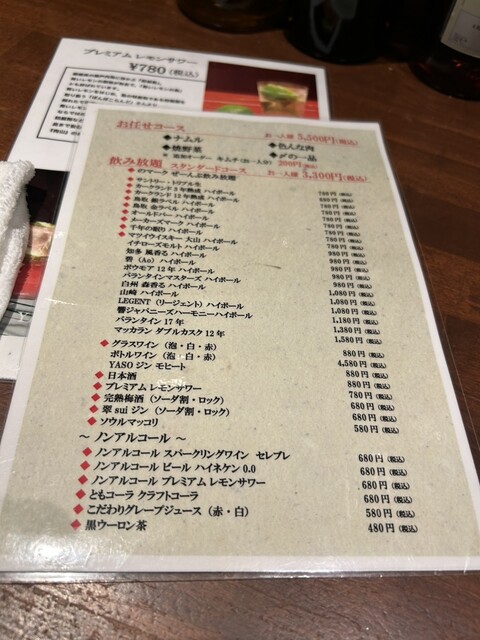 プレミアム レモンサワー
¥780(税込)
お任せコース お一人様 5,500円(税込)
◆ナムル ◆色んな肉
◆焼野菜 ◆〆の一品
追加オーダー キムチ(お一人分) 200円(税込)
飲み放題 スタンダードコース お一人様 3,300円(税込)
◆のマーク ぜーんぶ飲み放題
◆サントリー・トリプル生 780円(税込)
◆カークランド 3年熟成 ハイボール 680円(税込)
◆カークランド 12年熟成 ハイボール 780円(税込)
◆鳥取 銀ラベル ハイボール 780円(税込)
◆鳥取 金ラベル ハイボール 780円(税込)
◆オールドパー ハイボール 780円(税込)
◆メーカーズマーク ハイボール 780円(税込)
◆千年の眠り ハイボール 780円(税込)
◆マツイウイスキー 大山 ハイボール 780円(税込)
イチローズモルト ハイボール 980円(税込)
知多 風香る ハイボール 980円(税込)
碧 (Ao) ハイボール 980円(税込)
ボウモア 12年 ハイボール 980円(税込)
バランタインマスターズ ハイボール 980円(税込)
白州 森香る ハイボール 1,080円(税込)
山崎 ハイボール 1,080円(税込)
LEGENT (リージェント) ハイボール 1,080円(税込)
響ジャパニーズハーモニーハイボール 1,180円(税込)
バランタイン 17年 1,380円(税込)
マッカラン ダブルカスク 12年 1,580円(税込)
◆グラスワイン (泡・白・赤) 880円(税込)
ボトルワイン (泡・白・赤) 4,580円(税込)
YASO ジン モヒート 880円(税込)
◆日本酒 880円(税込)
◆プレミアム レモンサワー 780円(税込)
◆完熟梅酒 (ソーダ割・ロック) 680円(税込)
◆翠 sui ジン (ソーダ割・ロック) 680円(税込)
◆ソウルマッコリ 580円(税込)
〜 ノンアルコール 〜
◆ノンアルコール スパークリングワイン セレブレ 680円(税込)
◆ノンアルコール ビール ハイネケン 0.0 680円(税込)
◆ノンアルコール プレミアム レモンサワー 680円(税込)
◆ともコーラ クラフトコーラ 680円(税込)
◆こだわりグレープジュース (赤・白) 580円(税込)
◆黒ウーロン茶 480円(税込)